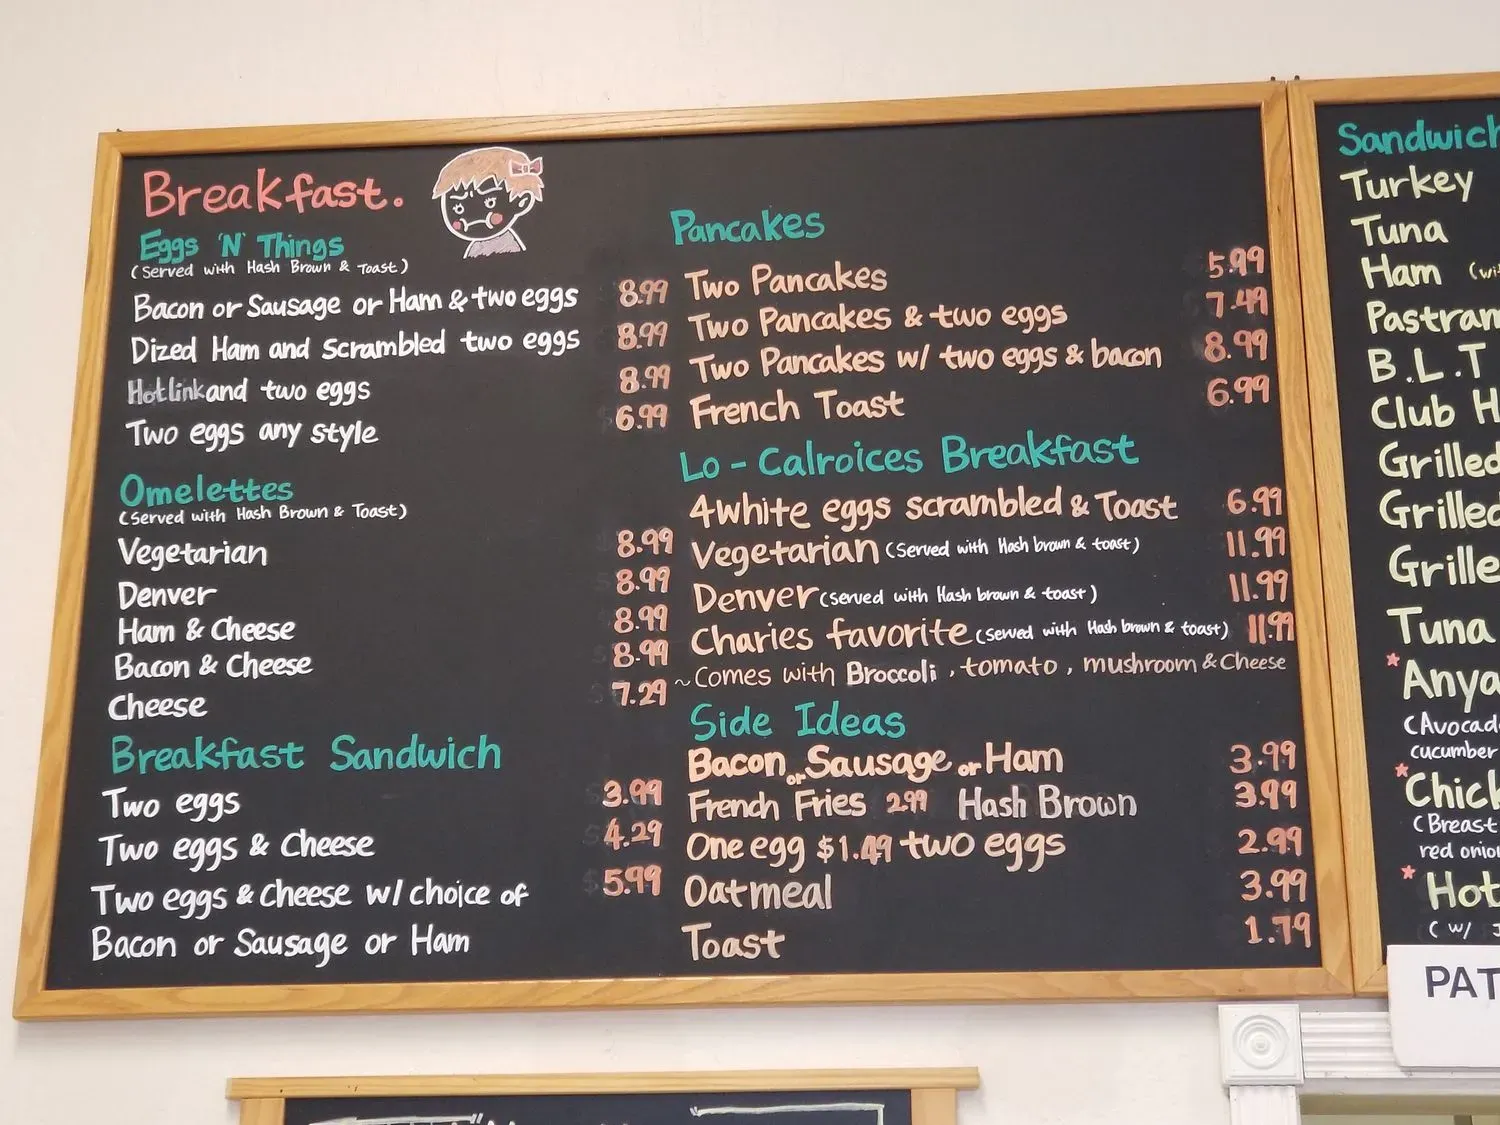 Breakfast.
Eggs 'N' Things
(Served with Hash Brown & Toast)
Bacon or Sausage or Ham & two eggs 8.99
Dized Ham and scrambled two eggs 8.99
Hotlink and two eggs 8.99
Two eggs any style 6.99
Omelettes
(Served with Hash Brown & Toast)
Vegetarian 8.99
Denver 8.99
Ham & Cheese 8.99
Bacon & Cheese 8.99
Cheese 7.29
Breakfast Sandwich
Two eggs 3.99
Two eggs & Cheese 4.29
Two eggs & Cheese w/ choice of 5.99
Bacon or Sausage or Ham
Pancakes
Two Pancakes 5.99
Two Pancakes & two eggs 7.49
Two Pancakes w/ two eggs & bacon 8.99
French Toast 6.99
Lo - Calroices Breakfast
4 white eggs scrambled & Toast 6.99
Vegetarian (Served with Hash brown & toast) 11.99
Denver (Served with Hash brown & toast) 11.99
Charies favorite (Served with Hash brown & toast) 11.99
~ Comes with Broccoli, tomato, mushroom & Cheese
Side Ideas
Bacon or Sausage or Ham 3.99
French Fries 2.99 Hash Brown 3.99
One egg $1.49 two eggs 2.99
Oatmeal 3.99
Toast 1.79
Sandwich
Turkey
Tuna
Ham (wi
Pastram
B.L.T
Club H
Grilled
Grilled
Grille
Tuna
* Anya
(Avocad
cucumber
* Chick
(Breast
red onio
* Hot
(w/ J
PAT